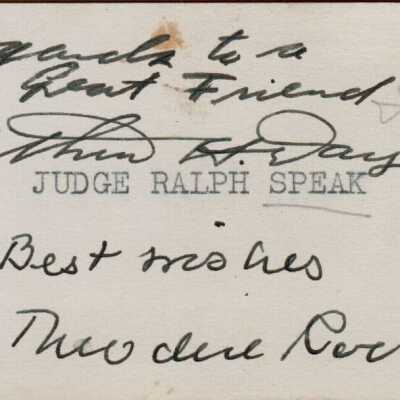 to a
Great Friend
H. Day
JUDGE RALPH SPEAK
Best wishes
Theodore